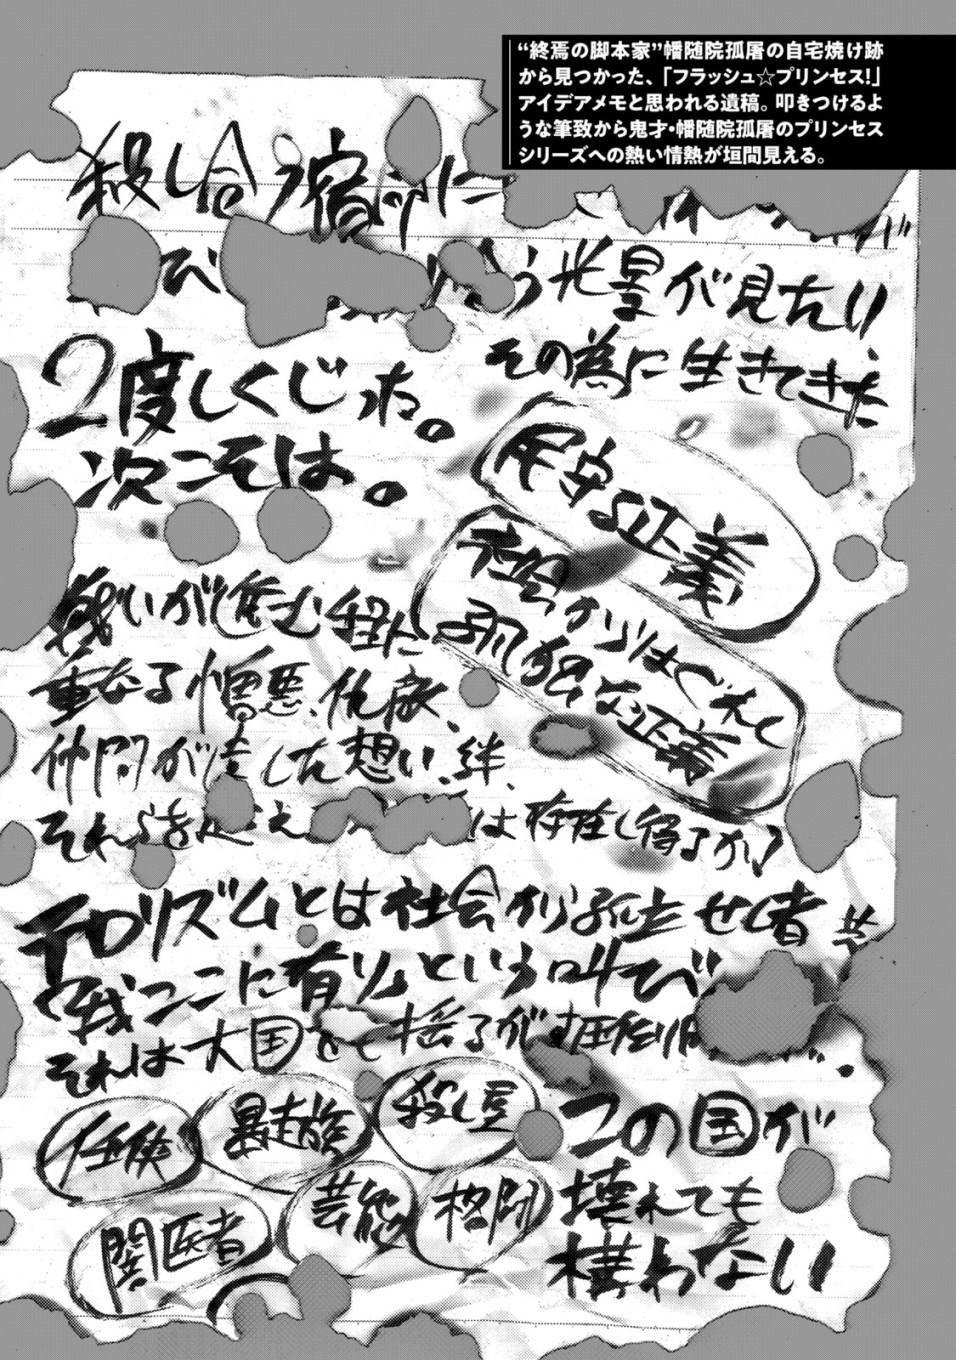 “終焉の脚本家”幡随院孤屠の自宅焼け跡
から見つかった、「フラッシュ☆プリンセス!」
アイデアメモと思われる遺稿。叩きつけるよ
うな筆致から鬼才・幡随院孤屠のプリンセス
シリーズへの熱い情熱が垣間見える。
殺し合う宿命に
び う光景が見たい
その為に生きてきた
2度しくじった。
次こそは。
尽くす正義
社会からはぐれし
孤独な正義
戦いが進む程に
重なる憎悪、仇敵、
仲間が遺した想い、絆、
それらを超え は存在し得るか?
テロリズムとは社会から孤立せし者共
「我ここに有り」という叫び
それは大国をも揺るがす圧倒
任侠
暴走族
殺し屋
闇医者
芸能
格闘
この国が
壊れても
構わない